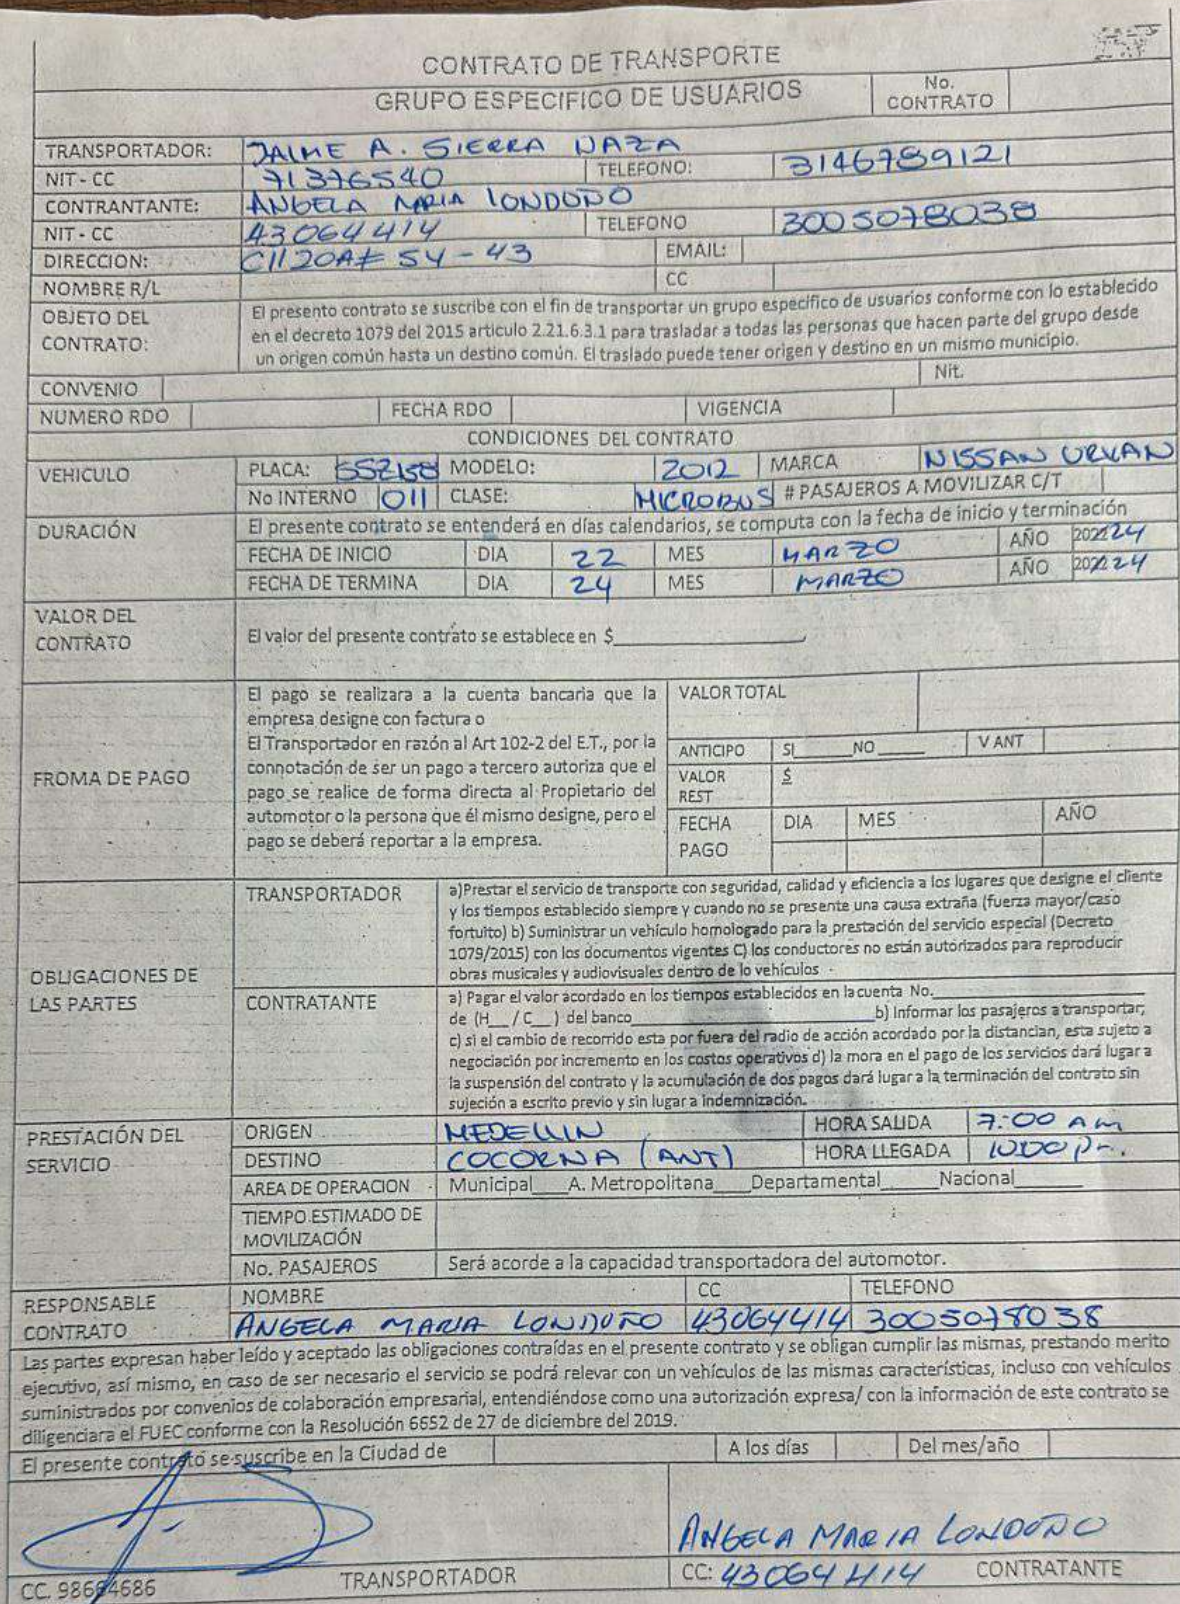 CONTRATO DE TRANSPORTE
GRUPO ESPECIFICO DE USUARIOS No. CONTRATO
TRANSPORTADOR: JAIME A. SIERRA NAZA
NIT - CC 71376540 TELEFONO: 3146789121
CONTRANTANTE: ANGELA MARIA LONDOÑO
NIT - CC 43064414 TELEFONO 3005078038
DIRECCION: Cll 20A# 54-43 EMAIL:
NOMBRE R/L CC
OBJETO DEL CONTRATO: El presento contrato se suscribe con el fin de transportar un grupo especifico de usuarios conforme con lo establecido
en el decreto 1079 del 2015 articulo 2.21.6.3.1 para trasladar a todas las personas que hacen parte del grupo desde
un origen común hasta un destino común. El traslado puede tener origen y destino en un mismo municipio.
CONVENIO Nit.
NUMERO RDO FECHA RDO VIGENCIA
CONDICIONES DEL CONTRATO
VEHICULO PLACA: SSZ158 MODELO: 2012 MARCA NISSAN URVAN
No INTERNO 011 CLASE: MICROBUS # PASAJEROS A MOVILIZAR C/T
DURACIÓN El presente contrato se entenderá en días calendarios, se computa con la fecha de inicio y terminación
FECHA DE INICIO DIA 22 MES MARZO AÑO 2024
FECHA DE TERMINA DIA 24 MES MARZO AÑO 2024
VALOR DEL CONTRATO El valor del presente contrato se establece en $
FROMA DE PAGO
El pago se realizara a la cuenta bancaria que la
empresa designe con factura o
El Transportador en razón al Art 102-2 del E.T., por la
connotación de ser un pago a tercero autoriza que el
pago se realice de forma directa al Propietario del
automotor o la persona que él mismo designe, pero el
pago se deberá reportar a la empresa.
VALOR TOTAL
ANTICIPO SI____NO____ V ANT
VALOR REST $
FECHA PAGO DIA MES AÑO
OBLIGACIONES DE LAS PARTES
TRANSPORTADOR a)Prestar el servicio de transporte con seguridad, calidad y eficiencia a los lugares que designe el cliente
y los tiempos establecido siempre y cuando no se presente una causa extraña (fuerza mayor/caso
fortuito) b) Suministrar un vehículo homologado para la prestación del servicio especial (Decreto
1079/2015) con los documentos vigentes C) los conductores no están autorizados para reproducir
obras musicales y audiovisuales dentro de lo vehículos
CONTRATANTE a) Pagar el valor acordado en los tiempos establecidos en la cuenta No.
de (H__ / C__) del banco____b) Informar los pasajeros a transportar;
c) si el cambio de recorrido esta por fuera del radio de acción acordado por la distancian, esta sujeto a
negociación por incremento en los costos operativos d) la mora en el pago de los servicios dará lugar a
la suspensión del contrato y la acumulación de dos pagos dará lugar a la terminación del contrato sin
sujeción a escrito previo y sin lugar a indemnización.
PRESTACIÓN DEL SERVICIO
ORIGEN MEDELLIN HORA SALIDA 7:00 Am
DESTINO COCORNA (ANT) HORA LLEGADA 10:00 pm.
AREA DE OPERACION Municipal____A. Metropolitana____Departamental____Nacional____
TIEMPO ESTIMADO DE
MOVILIZACIÓN
No. PASAJEROS Será acorde a la capacidad transportadora del automotor.
RESPONSABLE CONTRATO NOMBRE CC TELEFONO
ANGELA MARIA LONDOÑO 43064414 3005078038
Las partes expresan haber leído y aceptado las obligaciones contraídas en el presente contrato y se obligan cumplir las mismas, prestando merito
ejecutivo, así mismo, en caso de ser necesario el servicio se podrá relevar con un vehículos de las mismas características, incluso con vehículos
suministrados por convenios de colaboración empresarial, entendiéndose como una autorización expresa/ con la información de este contrato se
diligenciara el FUEC conforme con la Resolución 6652 de 27 de diciembre del 2019.
El presente contrato se suscribe en la Ciudad de A los días Del mes/año
ANGELA MARIA LONDOÑO
CC. 98664686 TRANSPORTADOR CC: 43064414 CONTRATANTE